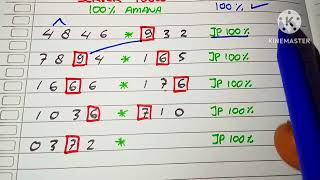 100% AMANA 100% ✓
4846 * 932 JP 100%
7894 * 165 JP 100%
1666 * 176 JP 100%
1036 * 710 JP 100%
0372 * JP 100%
KINEMASTER